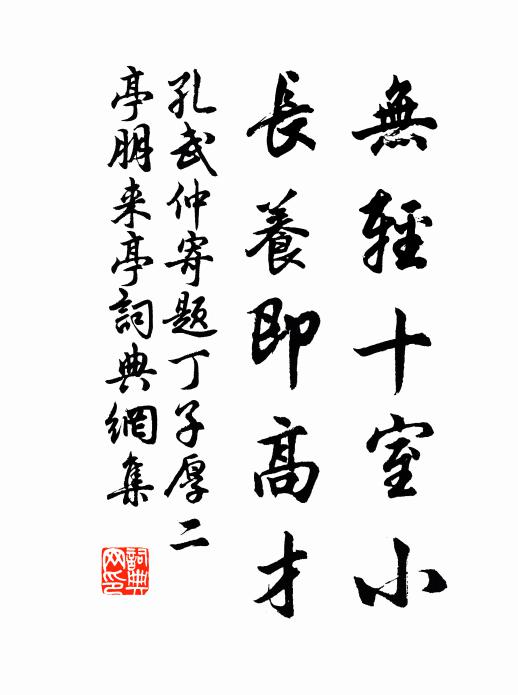 無輕十室小
長養即高才
孔武仲寄題丁子厚二
亭朋来亭詞典網集
詞典网印